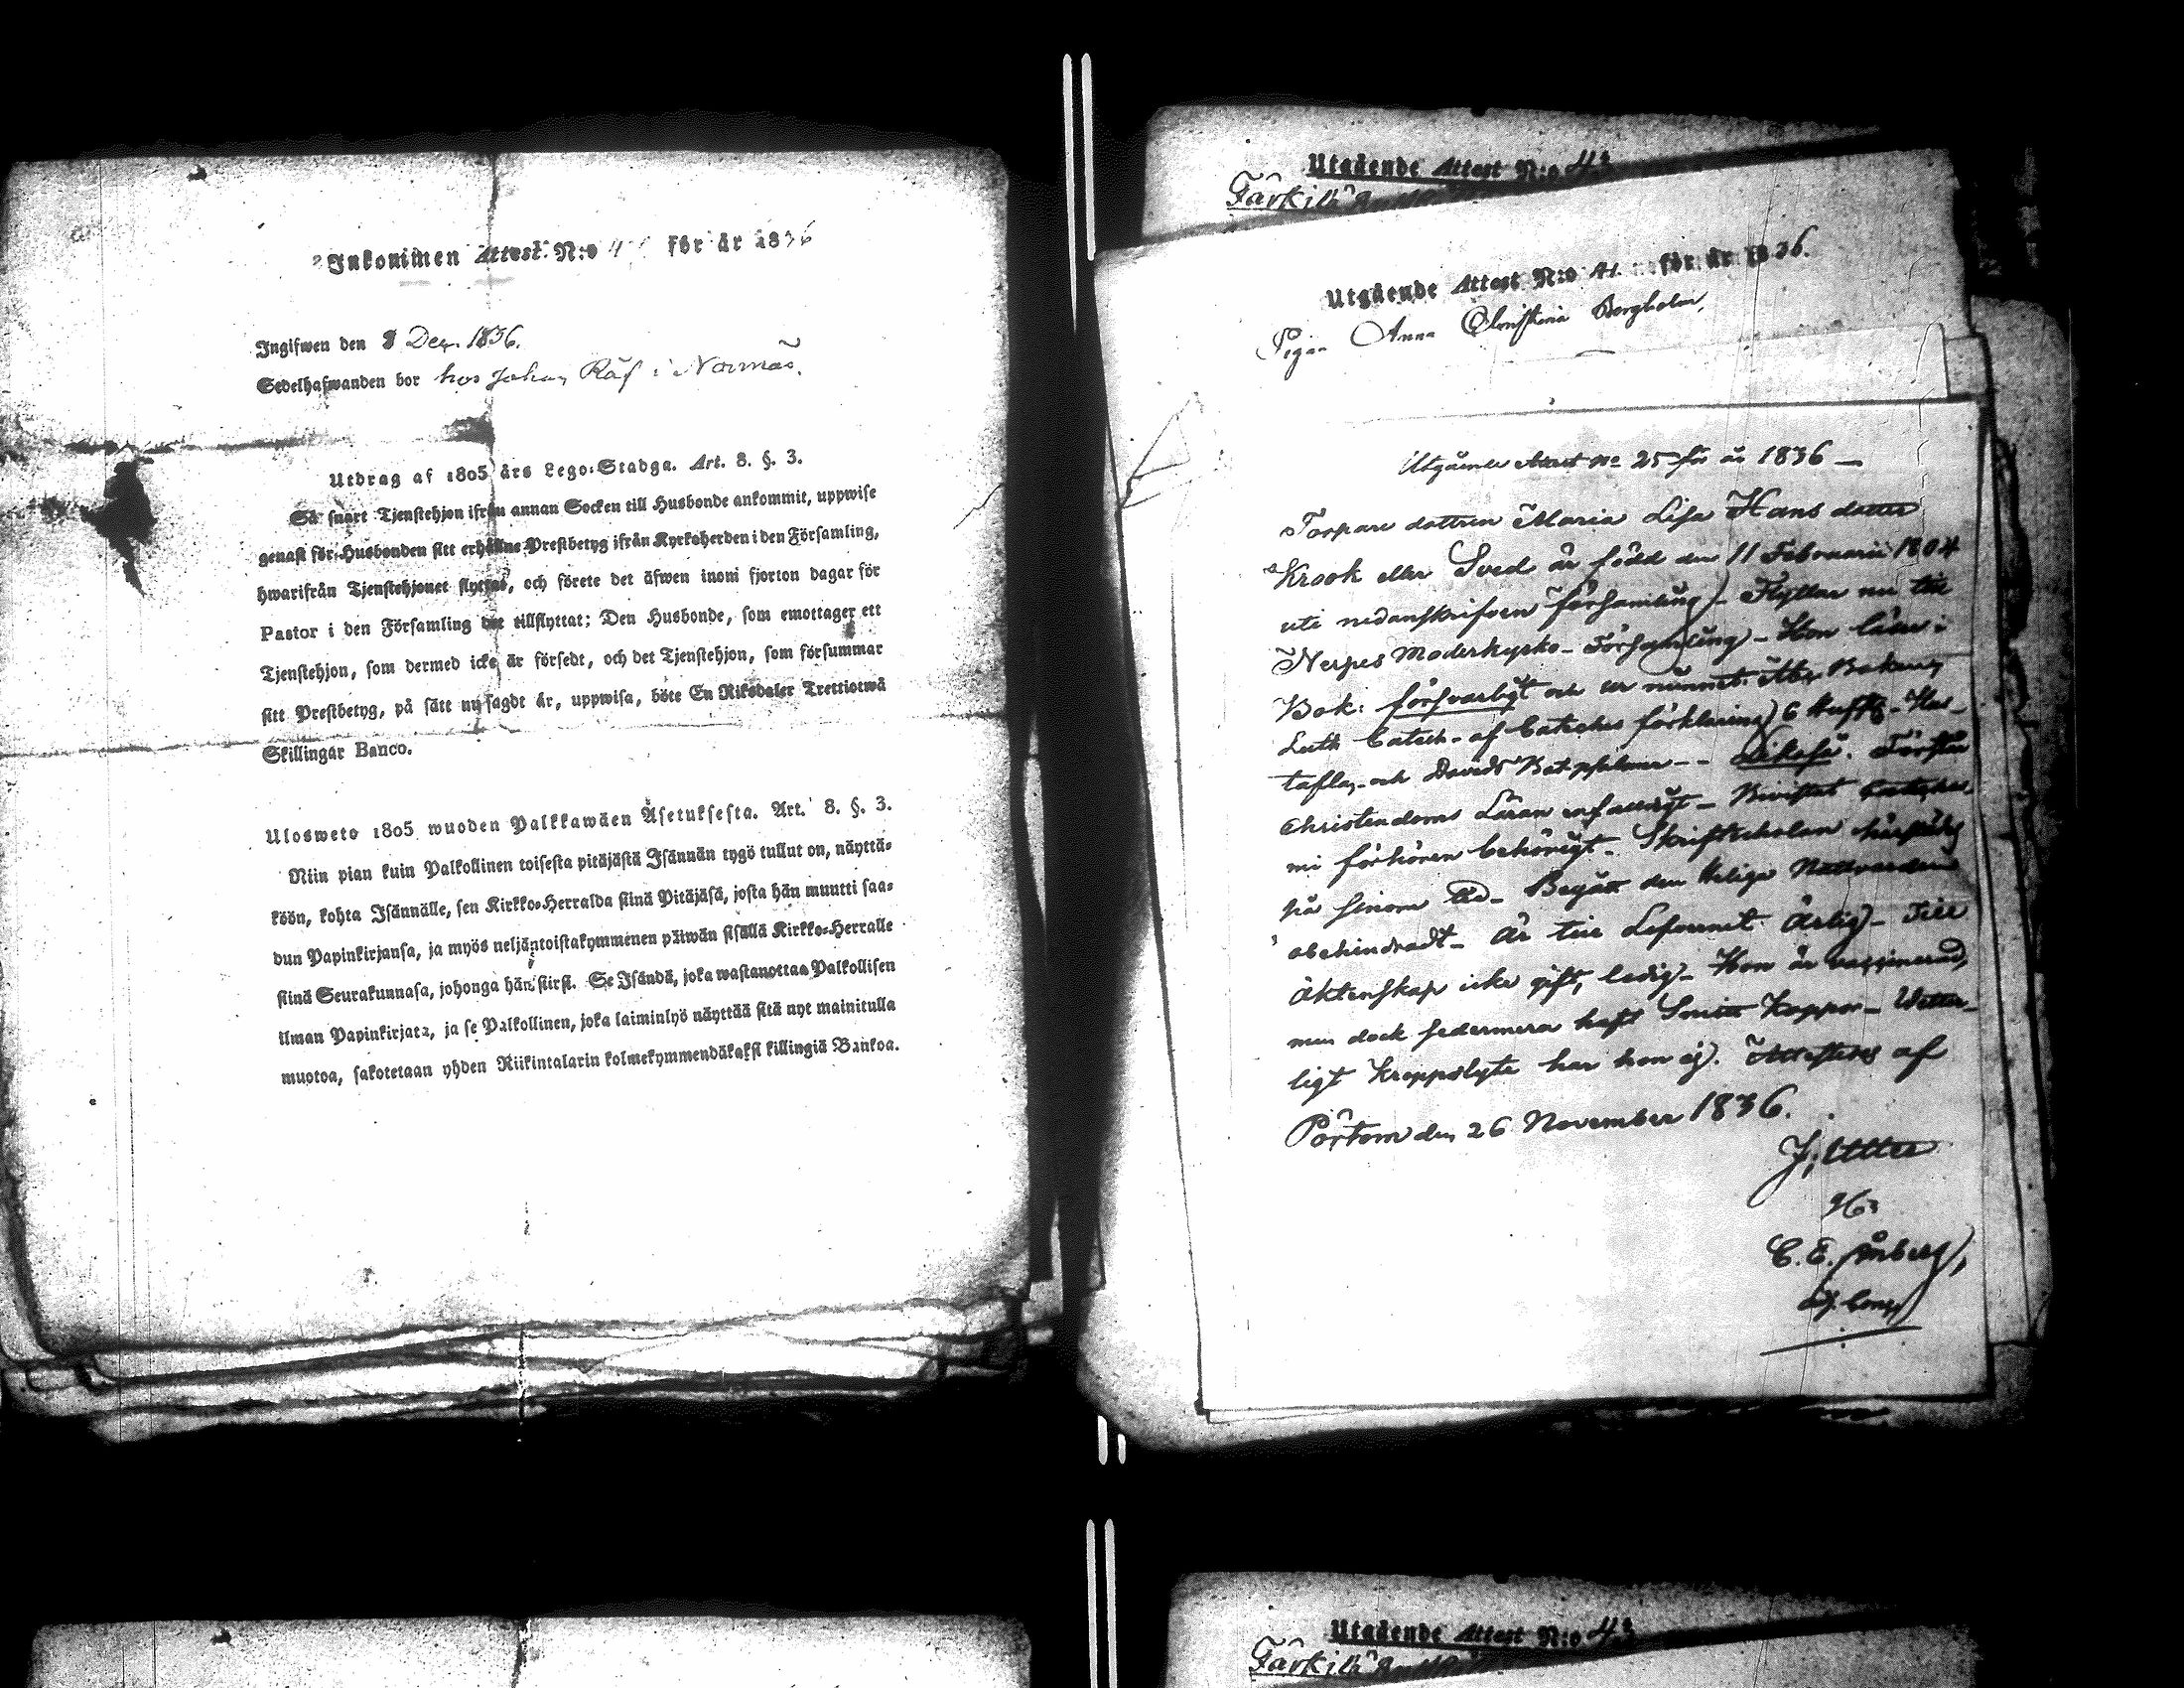 Inkommen Attest. N:o 4 för år 1836
Ingifwen den 8 Dec. 1836.
Sedelhafwanden bor hos Johan Räf i Normäs.
Utdrag af 1805 års Lego-Stadga. Art. 8. §. 3.
Så snart Tjenstehjon ifrån annan Socken till Husbonde ankommit, uppwise
genast för Husbonden sitt erhållne Prestbetyg ifrån Kyrkoherden i den Församling,
hwarifrån Tjenstehjonet flyttat, och förete det äfwen inom fjorton dagar för
Pastor i den Församling det tillflyttat; Den Husbonde, som emottager ett
Tjenstehjon, som dermed icke är försedt, och det Tjenstehjon, som försummar
sitt Prestbetyg, på sätt nu sagdt är, uppwisa, böte En Riksdaler Trettiotwå
Skillingar Banco.
Ulosweto 1805 wuoden Palkkawäen Asetuksesta. Art. 8. §. 3.
Niin pian kuin Palkollinen toisesta pitäjästä Isännän tygö tullut on, näyttä-
köön, kohta Isännälle, sen Kirkko-Herralda siinä Pitäjäsä, josta hän muutti saa-
dun Papinkirjansa, ja myös neljäntoistakymmenen päiwän sisällä Kirkko-Herralle
siinä Seurakunnasa, johonga hän siirsi. Se Isändä, joka wastanottaa Palkollisen
ilman Papinkirjata, ja se Palkollinen, joka laiminlyö näyttää sitä nyt mainitulla
muotoa, sakotetaan yhden Riikintalarin kolmekymmendäkaksi killingiä Bankoa.
Utgående Attest N:o 43
Utgående Attest N:o 41 för år 1836.
Pigan Anna Christina Bergholm,
Utgående Attest no 25 för år 1836 —
Torpare dottren Maria Lisa Hans dotter
Krook eller Sved är född den 11 Februarii 1804
uti nedanskrifven församling) - Flyttar nu till
Nerpes Moderkyrko-Församling) - Hon läser i
Bok: försvarligt och ur minnet: Abc Boken,
Luth Catech. af Cateches förklaring) 6 Hufst. - Hus-
tafla, och Davids Botpsalmer - - Likaså. Förstår
Christendoms Läran enfaldigt - Bivistat
förhören behörigt - Skriftscholan
på sinom tid - Begått den Heliga Nattvarden
obehindradt - Är till Lefvernet Ärlig) - Till
Äktenskap icke gift, ledig - Hon är vaccinerad,
men dock sedermera haft Smitt Koppor - Wetter-
ligt Kroppslyte har hon ej). Attesteras af
Pörtom den 26 November 1836.
C. E.